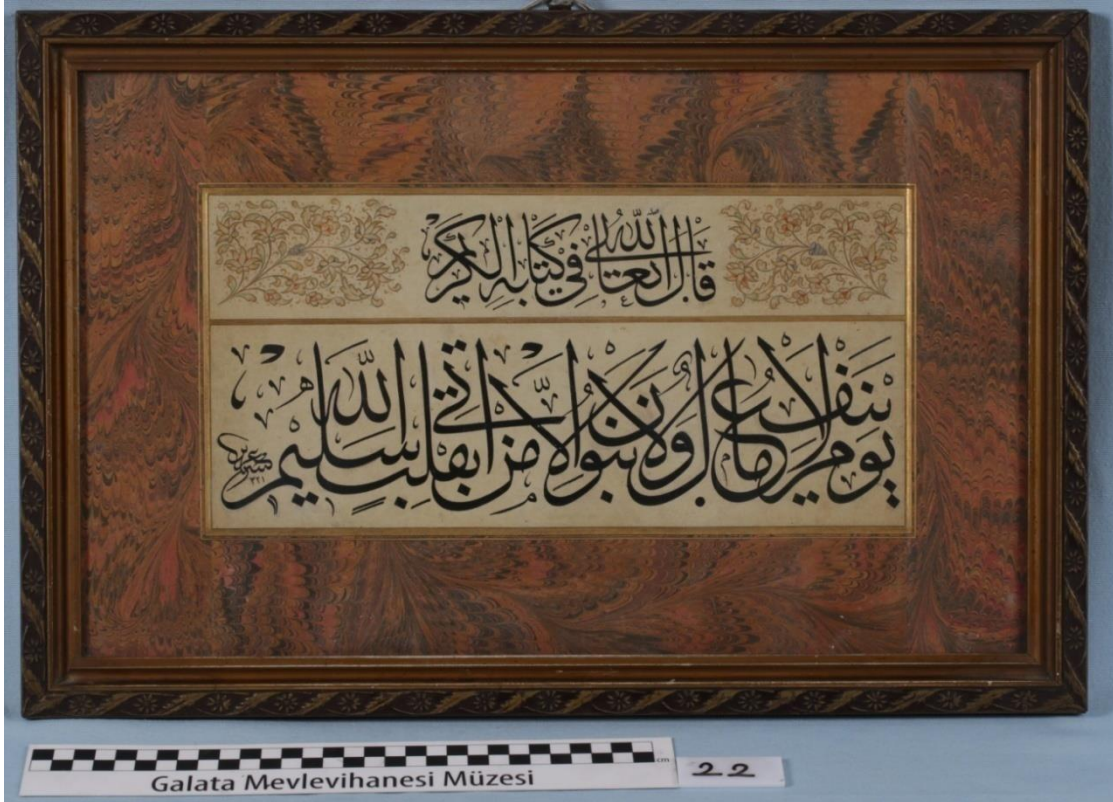 قال الله تعالى في كتابه الكريم
يوم لا ينفع مال ولا بنون الا من اتى الله بقلب سليم
٣٢١
cm
Galata Mevlevihanesi Müzesi
22